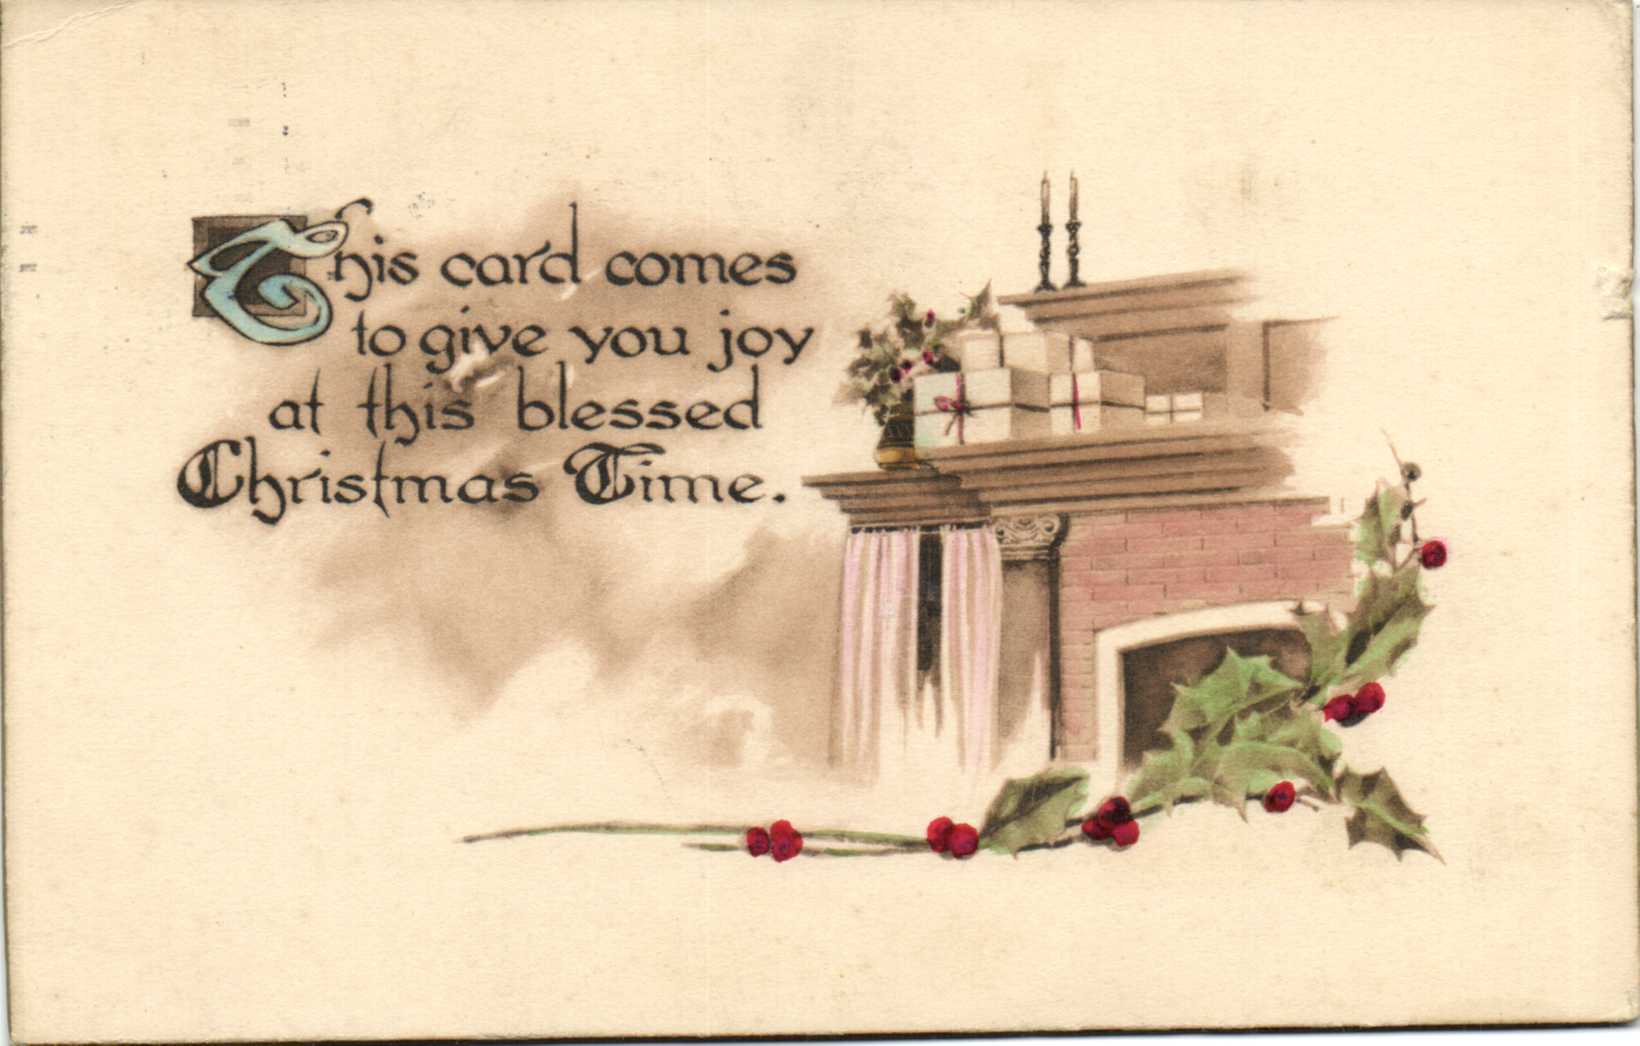 This card comes
to give you joy
at this blessed
Christmas Time.